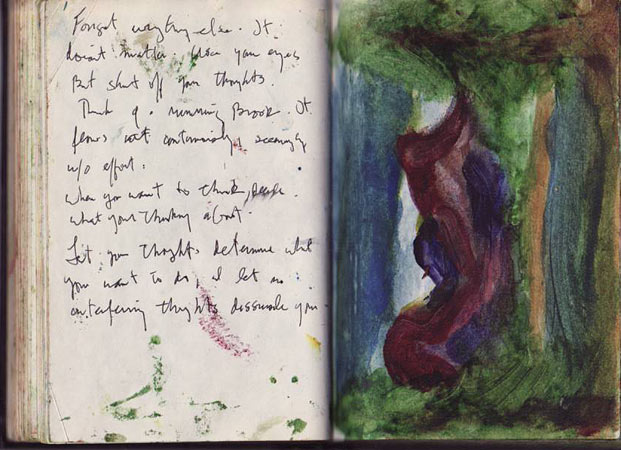 Forget everything else. It
doesn't matter. Use your eyes
But shut off your thoughts.
Think of a running Brook. It
flows out continuously, seemingly
w/o effort.
When you want to think, decide
what your thinking about.
Let your thoughts determine what
you want to do, & let no
interfering thoughts dissuade you